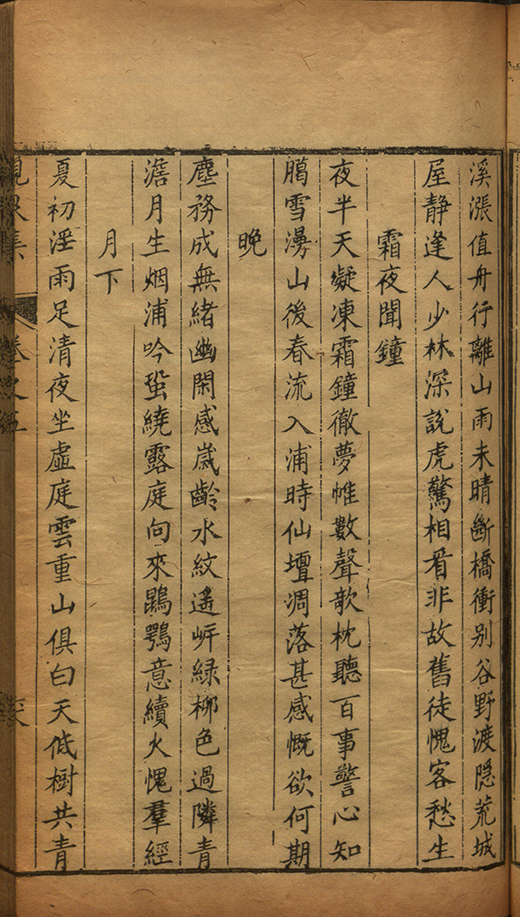 溪漲值舟行離山雨未晴斷橋衝别谷野渡隱荒城
屋静逢人少林深說虎驚相看非故舊徒愧客愁生
霜夜聞鐘
夜半天凝凍霜鐘徹夢帷數聲欹枕聽百事警心知
臈雪澷山後春流入浦時仙壇凋落甚感慨欲何期
晚
塵務成無緒幽閑感嵗齡水紋遙岸緑柳色過隣青
澹月生烟浦吟蛩繞露庭向來鵾鶚意續火愧羣經
月下
夏初淫雨足清夜坐虛庭雲重山俱白天低樹共青
集
卷之五